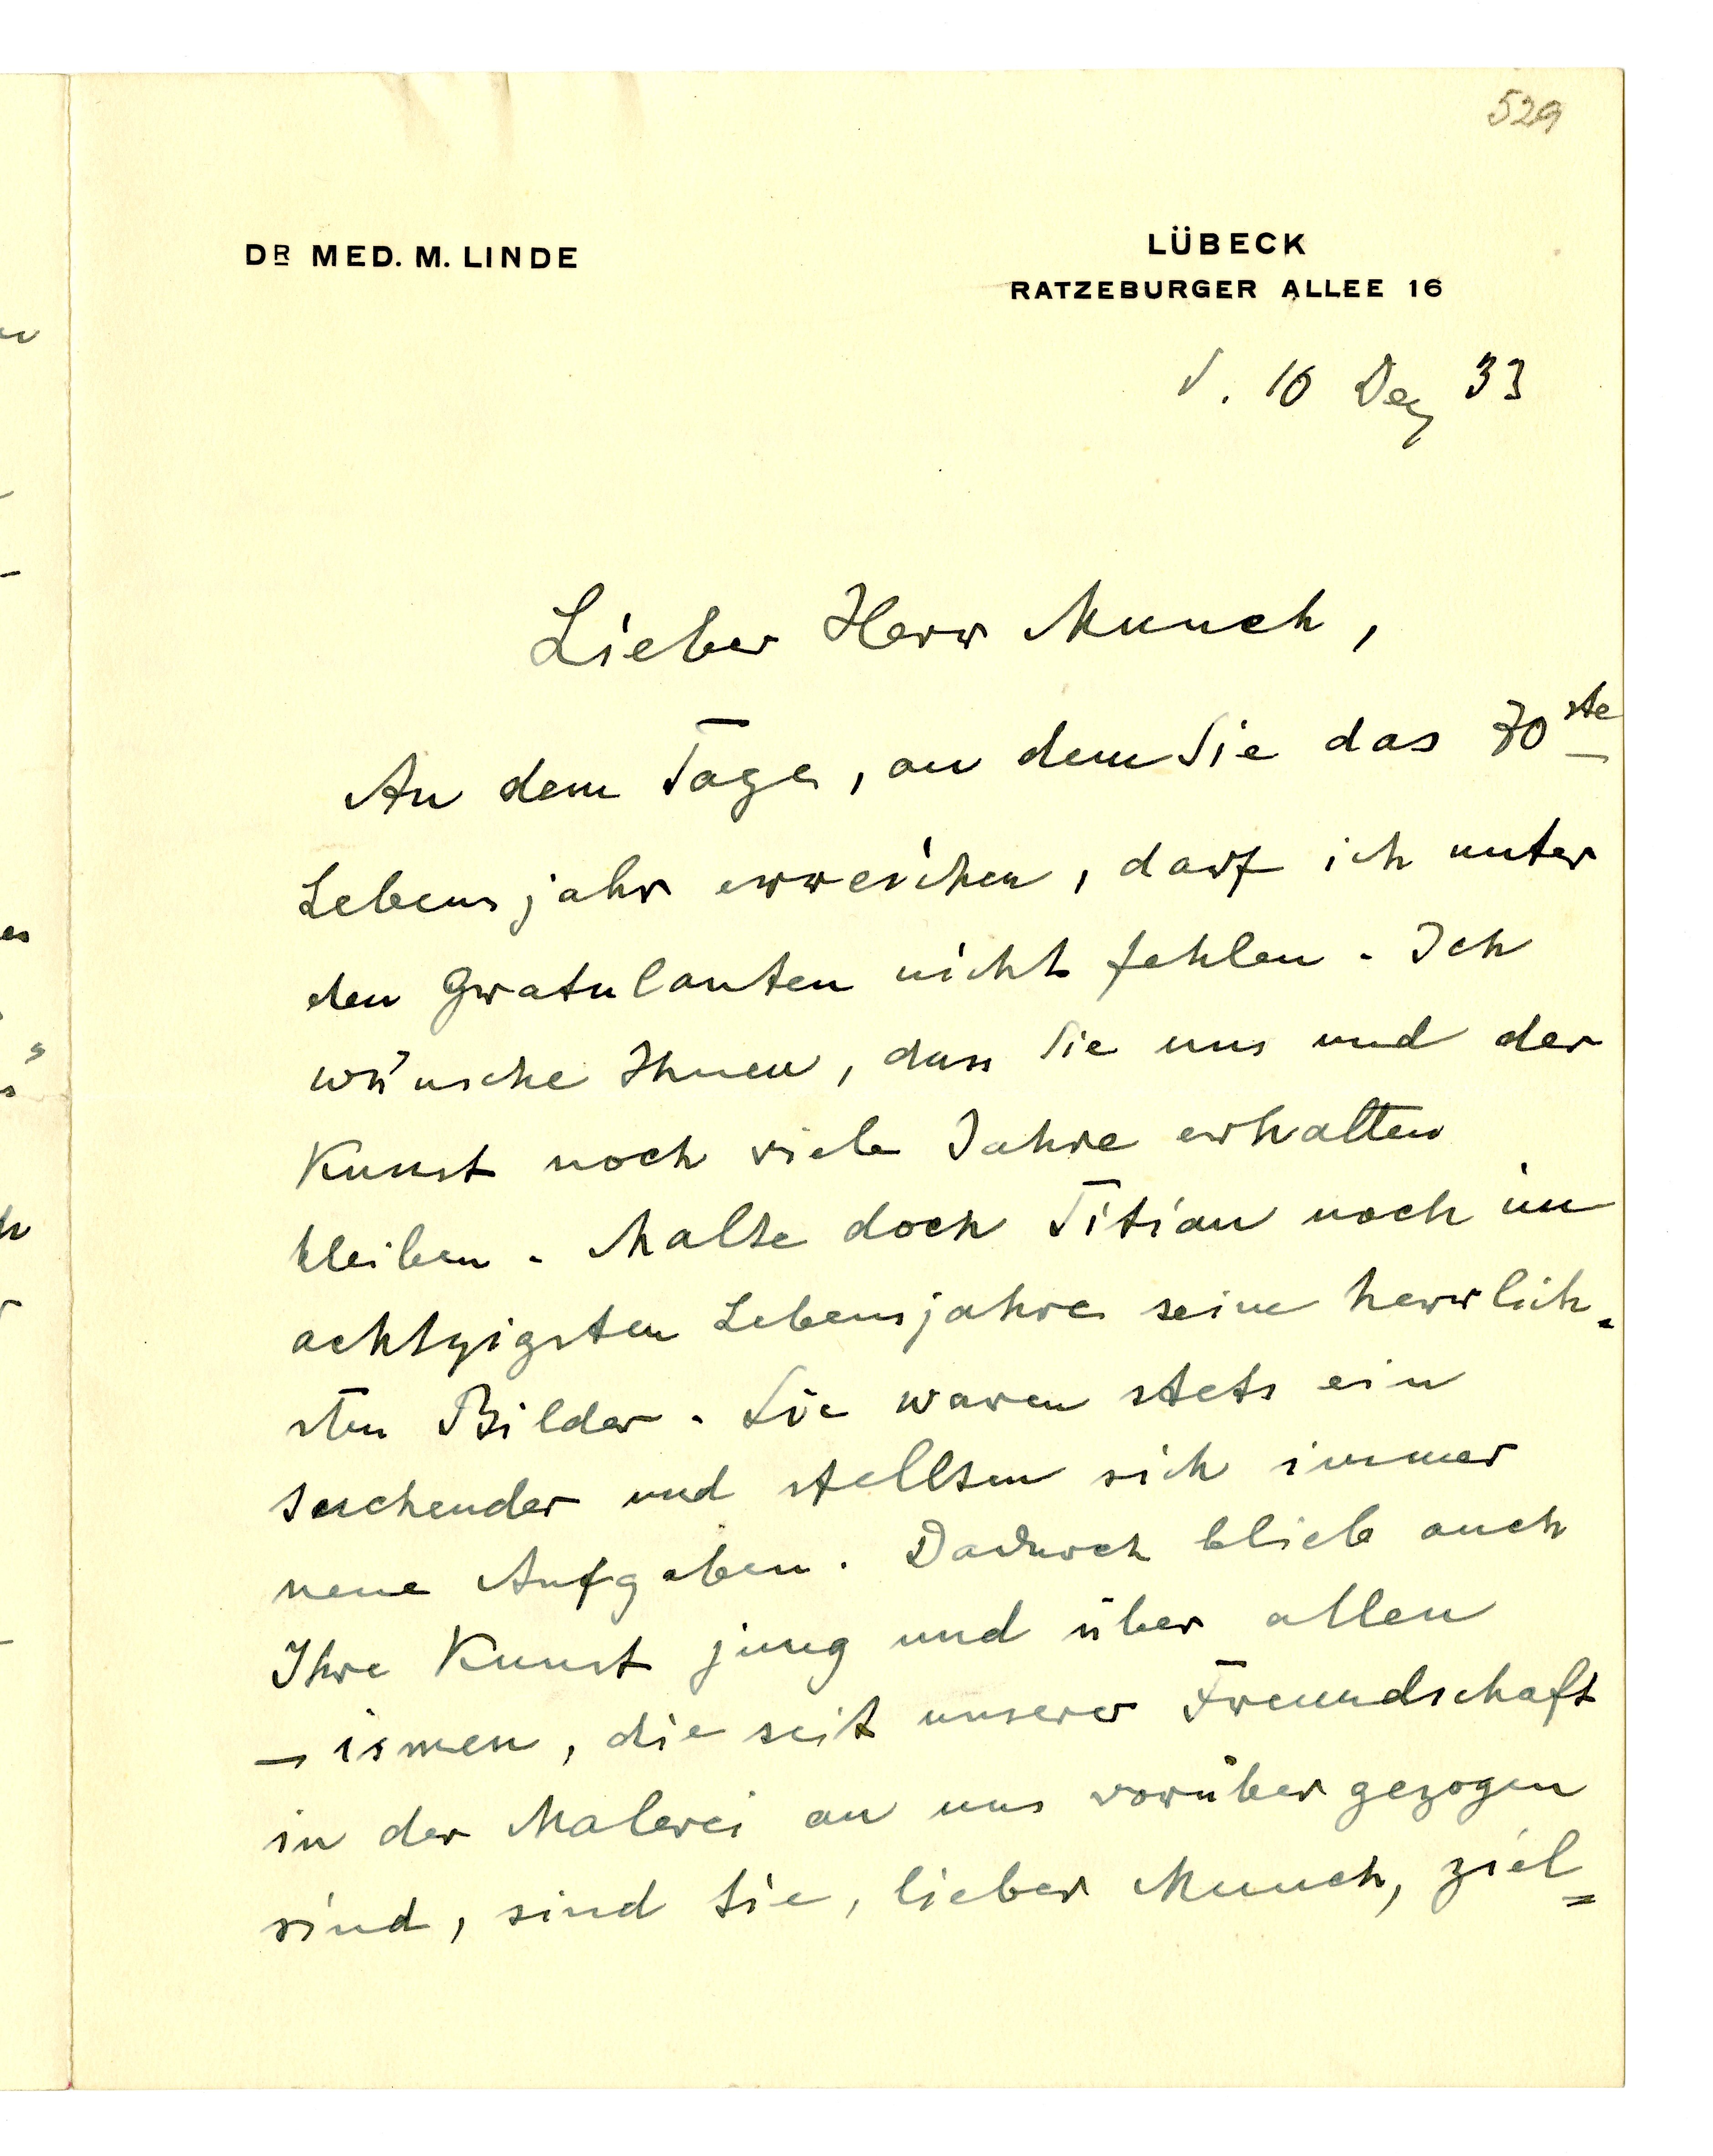 529
DR MED. M. LINDE
LÜBECK
RATZEBURGER ALLEE 16
d. 10 Dez 33
Lieber Herr Munch,
An dem Tage, an dem Sie das 70ste
Lebensjahr erreichen, darf ich unter
den Gratulanten nicht fehlen. Ich
wünsche Ihnen, dass Sie uns und der
Kunst noch viele Jahre erhalten
bleiben. Malte doch Titian noch im
achtzigsten Lebensjahre seine herrlich-
sten Bilder. Sie waren stets ein
suchender und stellten sich immer
neue Aufgaben. Dadurch blieb auch
Ihre Kunst jung und über allen
–ismen, die seit unserer Freundschaft
in der Malerei an uns vorüber gezogen
sind, sind Sie, lieber Munch, ziel=